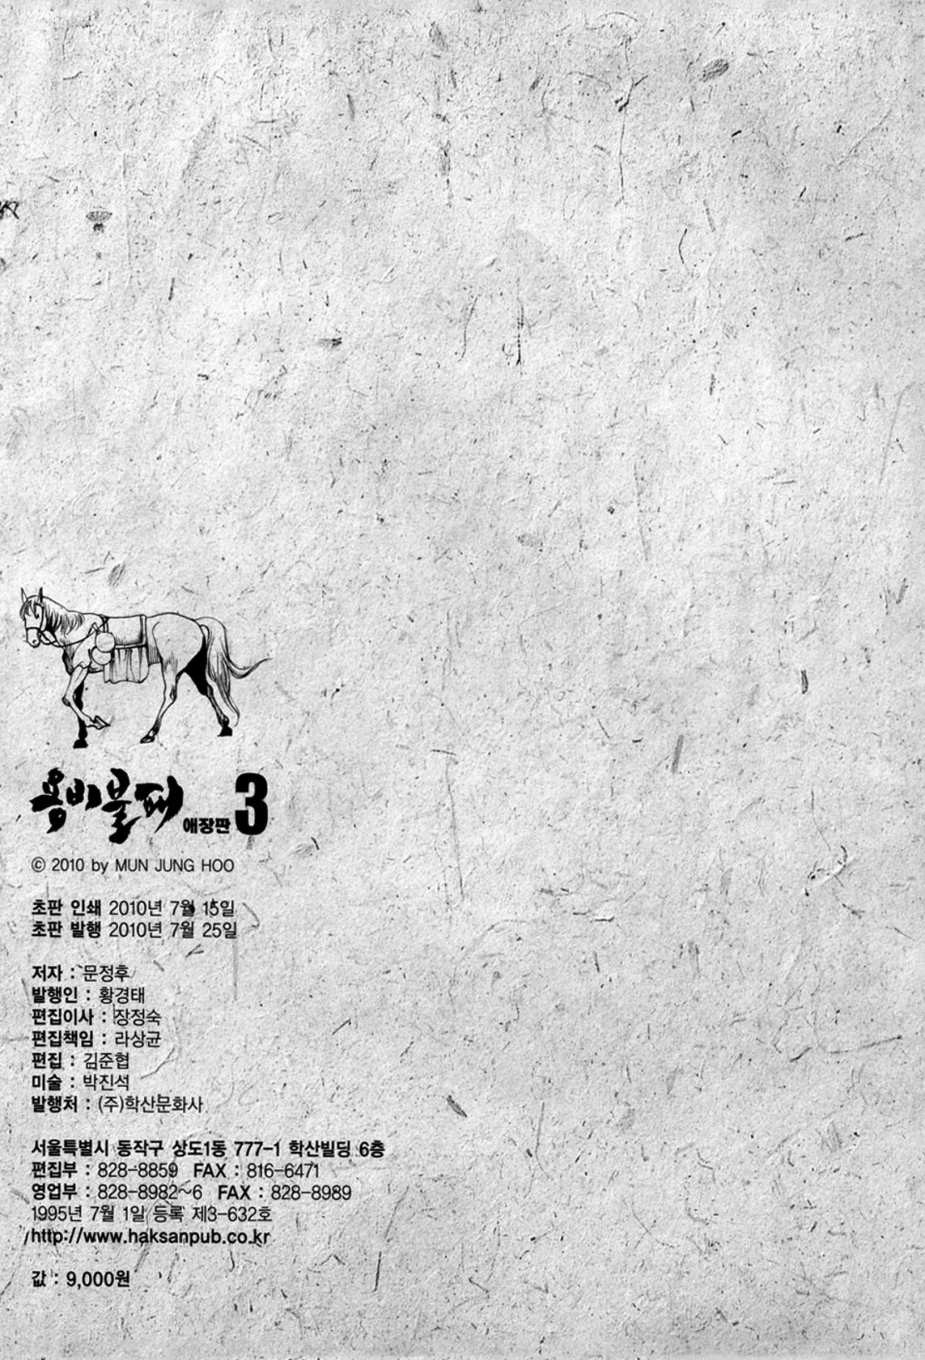 용비불패 애장판 3
© 2010 by MUN JUNG HOO
초판 인쇄 2010년 7월 15일
초판 발행 2010년 7월 25일
저자 : 문정후
발행인 : 황경태
편집이사 : 장정숙
편집책임 : 라상균
편집 : 김준협
미술 : 박진석
발행처 : (주)학산문화사
서울특별시 동작구 상도1동 777-1 학산빌딩 6층
편집부 : 828-8859 FAX : 816-6471
영업부 : 828-8982~6 FAX : 828-8989
1995년 7월 1일 등록 제3-632호
http://www.haksanpub.co.kr
값 : 9,000원